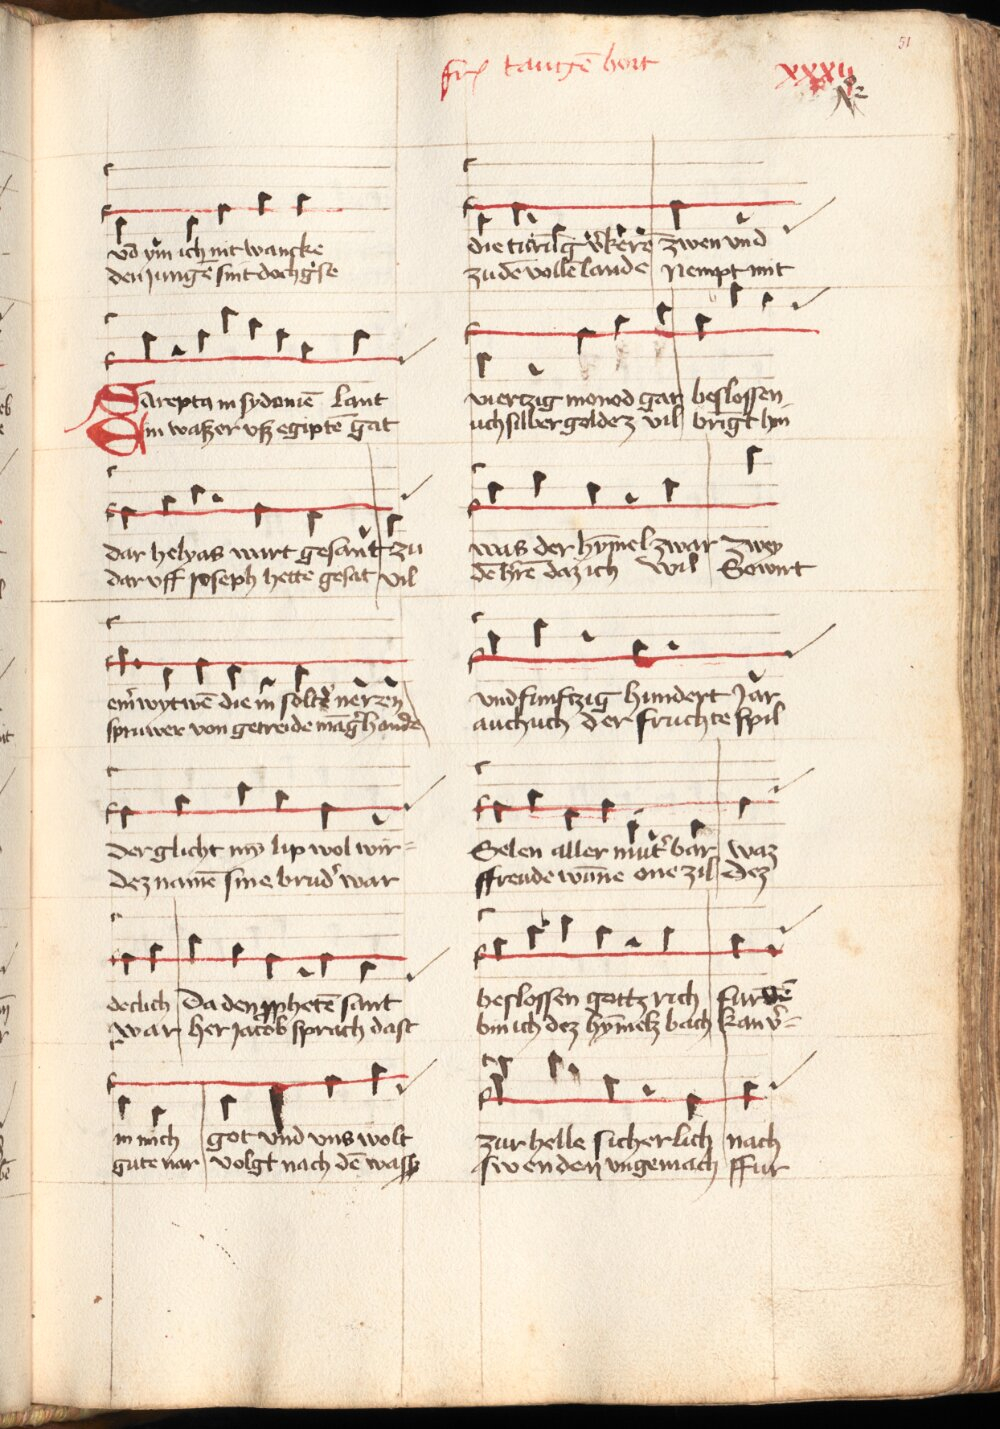 51
frā taugē hort
xxxij
vō ym ich nit wancke
den jungē sint doch gͤse
Sarepta in sydoniē lant
Ein waßer vß egiptē gat
dar helyas wart gesant zu
dar vff joseph hette gesat vil
eīr wytwē die in solt nerzen
spruwer von getreide māgerhande
der glicht my lip wol wir=
dez namē sine brudͤ war
declich Da den ꝓphetē sant
war her jacob sprach dast
in mich got vnd vns wolt
gute nar volgt nach dē waß
die vͦkerē zwen vnd
zu dē volle lande Nempt mit
viertzig monod gar beslossen
uch silber goldez vil bringt hin
was der hymel zwar Zwey
dē hͤrē daz ich wil So wirt
vnd funftzig hundert Jar
auch uch der fruchte spil
Selen aller mutͤ bar waz
ffreude wūne one zil dez
beslossen gottz rich fur dē
bin ich dez hymelz bach kan vͦ=
zur helle sicherlich nach
swenden vngemach ffur